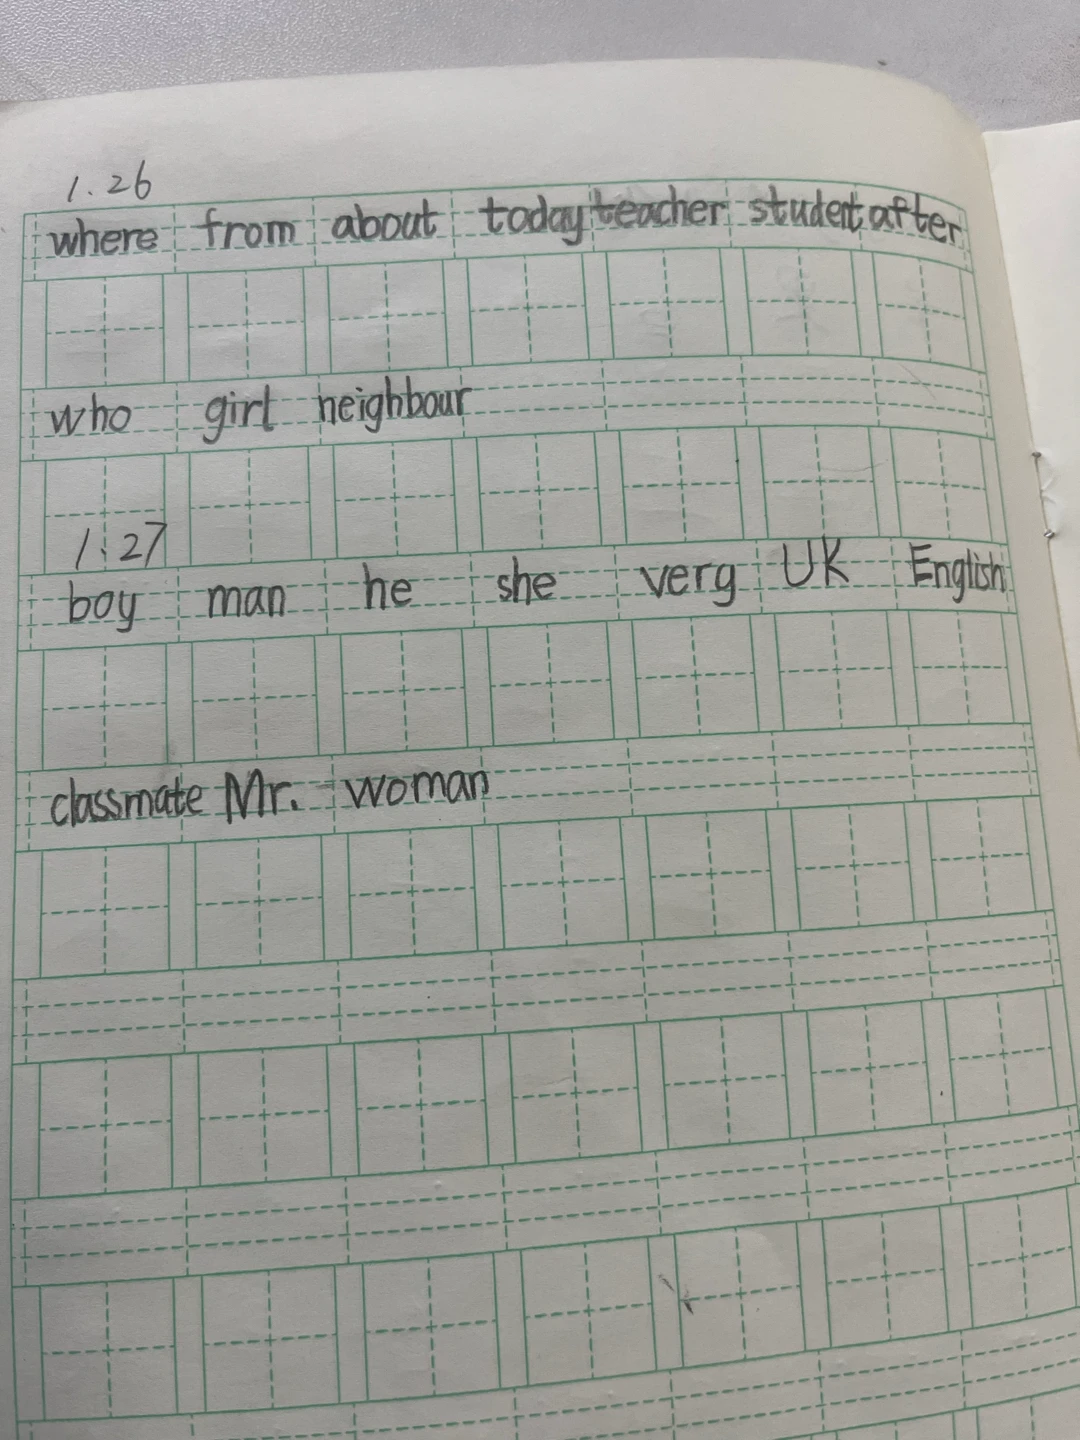 1.26
where from about today teacher student after
who girl neighbour
1.27
boy man he she verg UK English
classmate Mr. woman